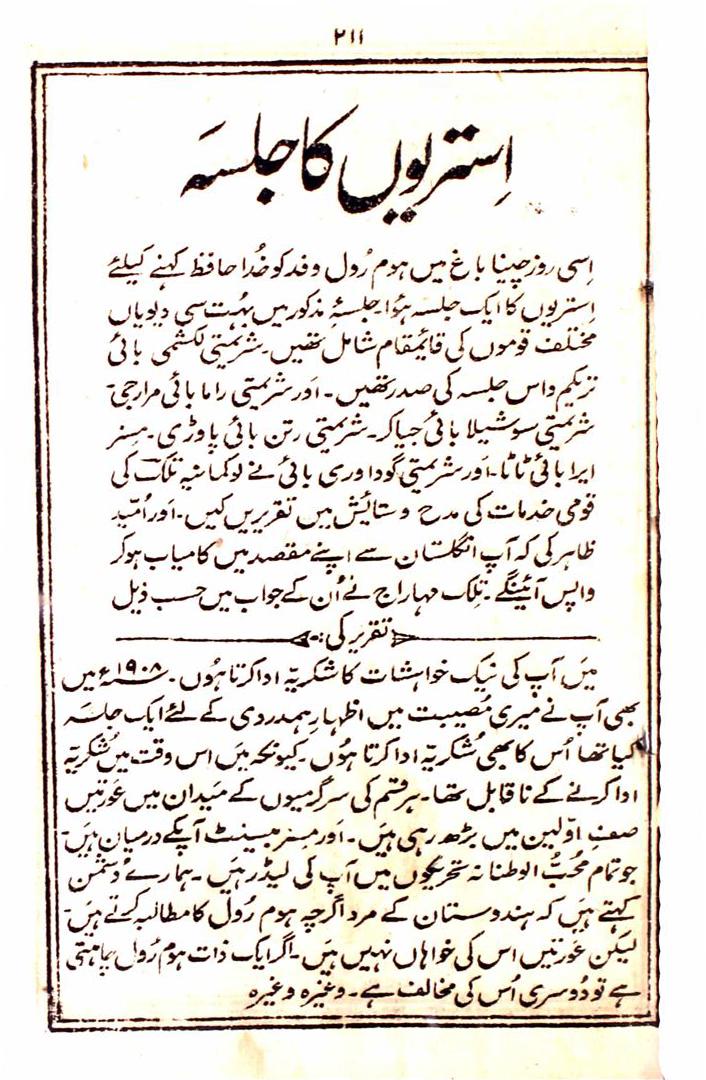 ۲۱۱
اِستریوں کا جلسہ
اِسی روز چینا باغ میں ہوم رُول وفد کو خُدا حافظ کہنے کیلئے
اِستریوں کا ایک جلسہ ہؤا۔ جلسۂ مذکور میں بہُت سی دیویاں
مختلف قوموں کی قائمقام شامل تھیں۔ شریمتی لکشمی بائی
تریکم داس جلسہ کی صدر تھیں۔ اَور شریمتی راما بائی مرارجی۔
شریمتی سوشیلا بائی جیاکر۔ شریمتی رتن بائی پاوڑی۔ مسز
ایرا بائی ٹاٹا۔ اَور شریمتی گوداوری بائی نے لوکمانیہ تلک کی
قومی خدمات کی مدح و ستایش میں تقریریں کیں۔ اَور اُمّید
ظاہر کی کہ آپ انگلستان سے اپنے مقصد میں کامیاب ہوکر
واپس آئینگے۔ تِلک مہاراج نے اُن کے جواب میں حسب ذیل
تقریر کی:۔
میَں آپ کی نیک خواہشات کا شکریّہ ادا کرتا ہُوں۔ ۱۹۰۸ء میں
بھی آپ نے میری مُصیبت میں اظہارِ ہمدردی کے لئے ایک جلسہ
کیا تھا اُس کا بھی شُکریّہ ادا کرتا ہُوں۔ کیونکہ میَں اس وقت میں شُکریّہ
ادا کرنے کے ناقابل تھا۔ ہر قسم کی سرگرمیوں کے میَدان میں عَورتیں
صفِ اوّلین میں بڑھ رہی ہیَں۔ اَور مِسز بیسنٹ آپکے درمیان ہیَں۔
جو تمام مُحبُّ الوطنانہ تحریکوں میں آپ کی لیڈر ہیَں۔ ہمارے دُشمن
کہتے ہیَں کہ ہندوستان کے مرد اگرچہ ہوم رُول کا مطالبہ کرتے ہیَں۔
لیکن عَورتیں اس کی خواہاں نہیں ہیَں۔ اگر ایک ذات ہوم رُول چاہتی
ہے تو دُوسری اُس کی مخالف ہے۔ وغیرہ وغیرہ